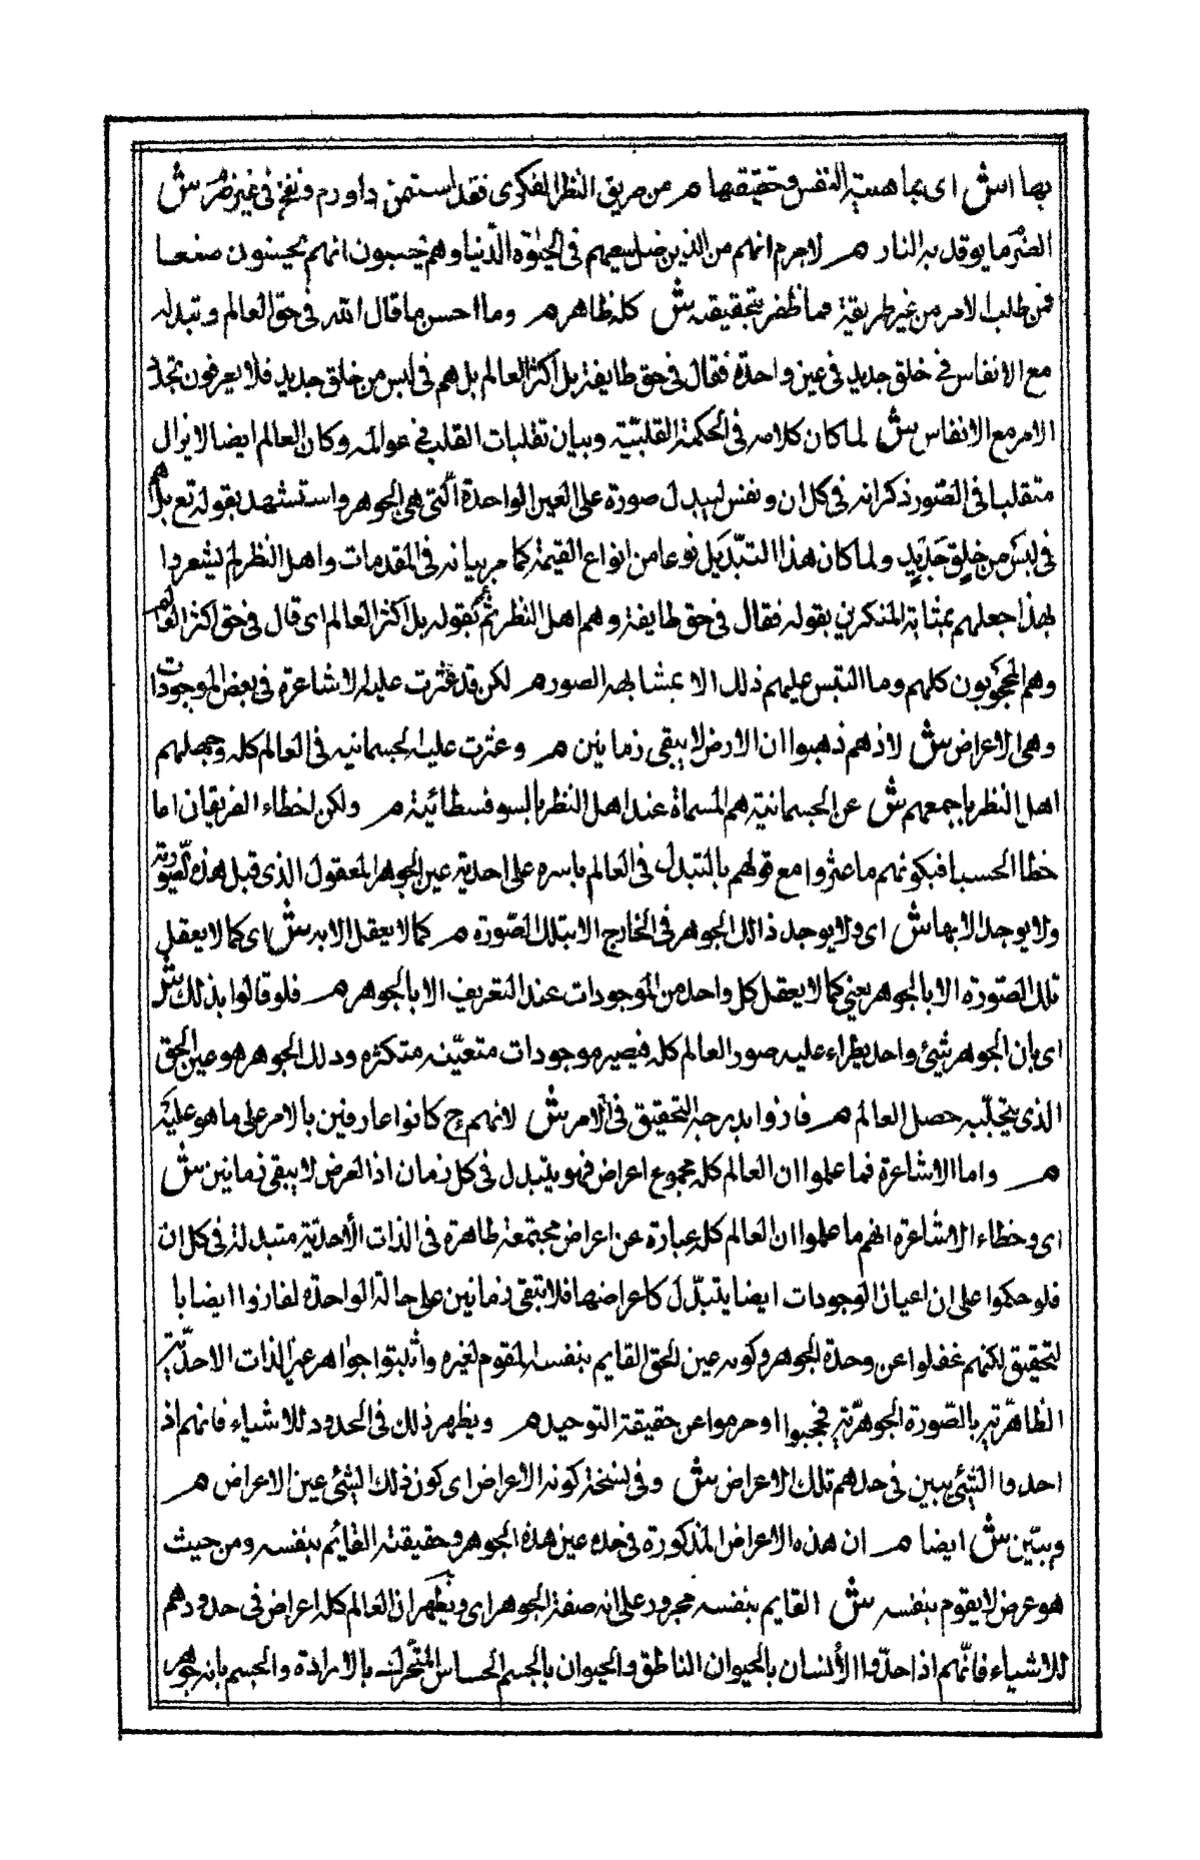 بها ش اى بماهية النفس وحقيقتها م من طريق النظر الفكرى فقد استسمن ذا ورم ونفخ فى غير ضرم ش
الضرم ما يوقد به النار م لاجرم انهم من الذين ضل سعيهم فى الحيوة الدنيا وهم يحسبون انهم يحسنون صنعا
فمن طلب الامر من غير طريقه فما ظفر بتحقيقه ش كله ظاهر م وما احسن ما قال الله فى حق العالم وتبدله
مع الانفاس فى خلق جديد فى عين واحدة فقال فى حق طايفة بل اكثر العالم بل هم فى لبس من خلق جديد فلا يعرفون تجدد
الامر مع الانفاس ش لما كان كلامه فى الحكمة القلبية وبيان تقلبات القلب فى عوالمه وكان العالم ايضا لا يزال
متقلبا فى الصور ذكر انه فى كل ان ونفس يتبدل صورة على العين الواحدة التى هى الجوهر واستشهد بقوله تع بل هم
فى لبس من خلق جديد ولما كان هذا التبديل نوعا من انواع القيمة كما مر بيانه فى المقدمات واهل النظر لم يشعروا
بهذا جعلهم بمثابة المنكرين بقوله فقال فى حق طايفة وهم اهل النظر ثم بقوله بل اكثر العالم اى قال فى حق اكثر العالم
وهم المحجوبون كلهم وما التبس عليهم ذلك الا بمشابهة الصور م لكن قد عثرت عليه الاشاعرة فى بعض الموجودات
وهى الاعراض ش لانهم ذهبوا ان الارض لا يبقى زمانين م وعثرت عليه الجسمانيه فى العالم كله وجهلهم
اهل النظر باجمعهم ش عن الجسمانية هم المسماة عند اهل النظر بالسوفسطائية م ولكن اخطاء الفريقان اما
خطا الحسبا فبكونهم ما عثروا مع قولهم بالتبدل فى العالم باسره على احدية عين الجوهر المعقول الذى قبل هذه الصورة
ولا يوجد الا بها ش اى ولا يوجد ذالك الجوهر فى الخارج الا بتلك الصورة م كما لا يعقل الا به ش اى كما لا يعقل
تلك الصورة الا بالجوهر يعنى كما لا يعقل كل واحد من الموجودات عند التعريف الا بالجوهر م فلو قالوا بذلك ش
اى بان الجوهر شئ واحد يطراء عليه صور العالم كله فيصير موجودات متعينه متكثره وذلك الجوهر هو عين الحق
الذى بتجليه حصل العالم م فازوا بدرجة التحقيق فى الامر ش لانهم ح كانوا عارفين بالامر على ما هو عليه
م واما الاشاعرة فما علموا ان العالم كله مجموع اعراض فهو يتبدل فى كل زمان اذ العرض لا يبقى زمانين ش
اى وخطاء الاشاعرة انهم ما علموا ان العالم كله عبارة عن اعراض مجتمعة ظاهرة فى الذات الاحدية متبدلة فى كل ان
فلو حكموا على ان اعيان الموجودات ايضا يتبدل كاعراضها فلا تبقى زمانين على حالة الواحدة لفازوا ايضا با
لتحقيق لكنهم غفلوا عن وحدة الجوهر وكونه عين الحق القايم بنفسه المقوم لغيره واثبتوا جواهر غير الذات الاحدية
الظاهرة بالصورة الجوهرية فحجبوا وحرموا عن حقيقة التوحيد م ويظهر ذلك فى الحدود للاشياء فانهم اذ
احدوا الشئ يبين فى حدهم تلك الاعراض ش وفى نسخة كونه الاعراض اى كون ذلك الشئ عين الاعراض م
ويبين ش ايضا م ان هذه الاعراض المذكورة فى حده عين هذه الجوهر وحقيقته القائم بنفسه ومن حيث
هو عرض لا يقوم بنفسه ش القايم بنفسه مجرور على انه صفة الجوهر اى ويظهر ان العالم كله اعراض فى حدودهم
للاشياء فانهم اذا حدوا الانسان بالحيوان الناطق والحيوان بالجسم الحساس المتحرك بالارادة والجسم بانه جوهر